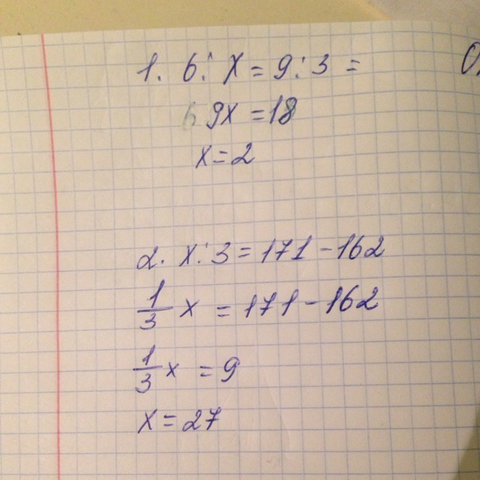 1. 6 : x = 9 : 3 =
9x = 18
x = 2
2. x : 3 = 171 - 162
1/3 x = 171 - 162
1/3 x = 9
x = 27